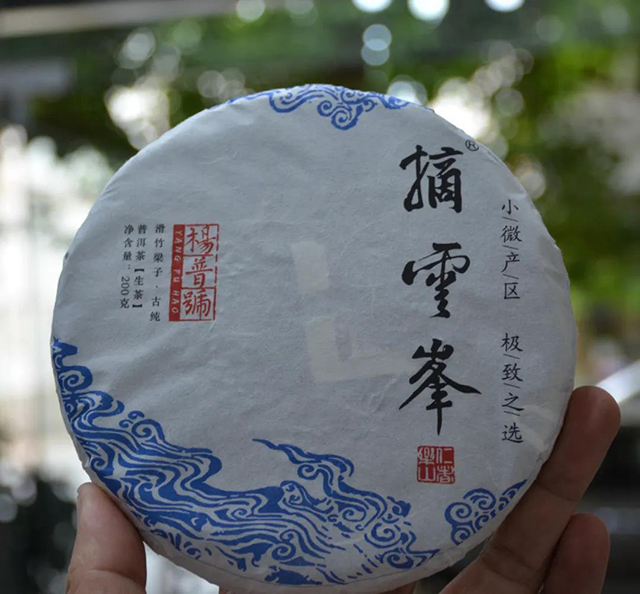 摘雲峯®
小微产区 极致之选
仁者樂山
楊普號
YANG PU HAO
滑竹梁子·古纯
普洱茶【生茶】
净含量:200克